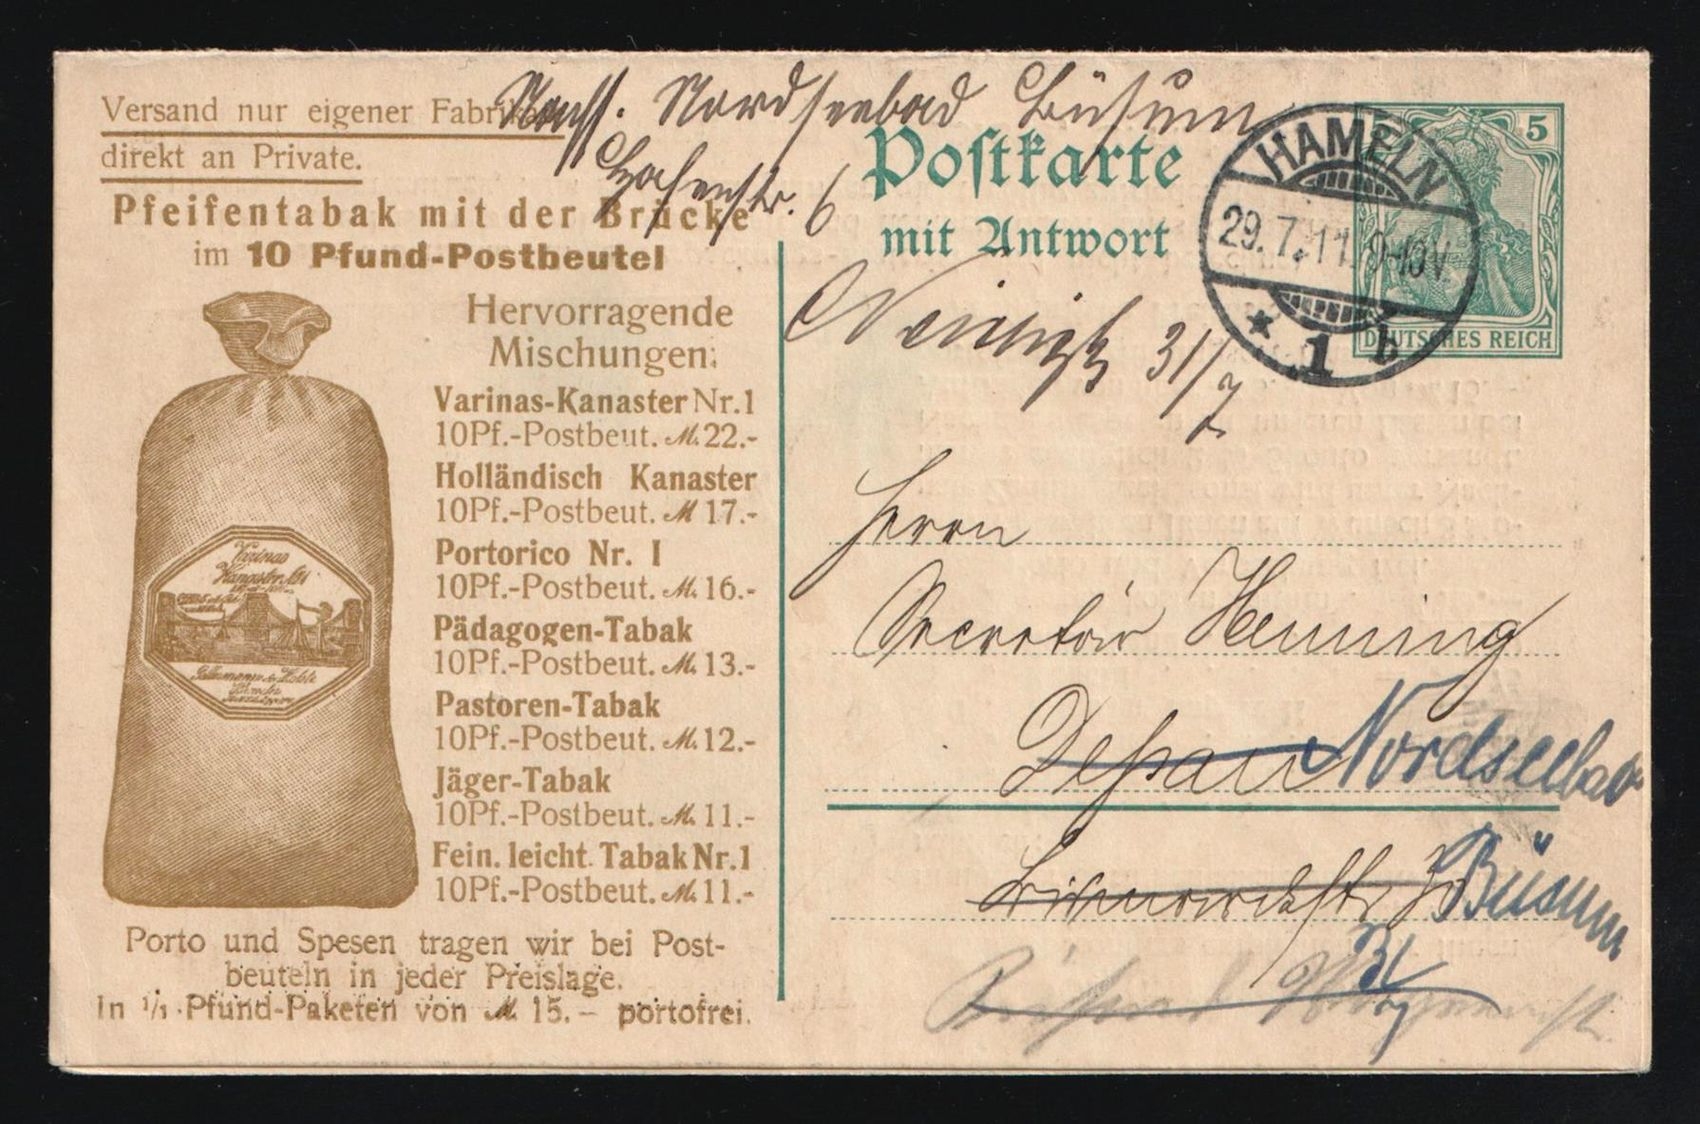 Versand nur eigener Fabrikate
direkt an Private.
Pfeifentabak mit der Brücke
im 10 Pfund-Postbeutel
Hervorragende
Mischungen:
Varinas-Kanaster Nr. 1
10Pf.-Postbeut. M. 22.-
Holländisch Kanaster
10Pf.-Postbeut. M 17.-
Portorico Nr. I
10Pf.-Postbeut. M. 16.-
Pädagogen-Tabak
10Pf.-Postbeut. M. 13.-
Pastoren-Tabak
10Pf.-Postbeut. M. 12.-
Jäger-Tabak
10Pf.-Postbeut. M. 11.-
Fein. leicht. Tabak Nr. 1
10Pf.-Postbeut. M. 11.-
Varinas
Kanaster
Porto und Spesen tragen wir bei Post-
beuteln in jeder Preislage.
In 1/1 Pfund-Paketen von M 15.- portofrei.
Nordseebad Büsum
Hafenstr. 6
Postkarte
mit Antwort
HAMELN
29.7.11. 9-10V.
* 1 b
5
DEUTSCHES REICH
31/7
Herrn
Secretär Henning
Dessau Nordseebad
Büsum
31/7